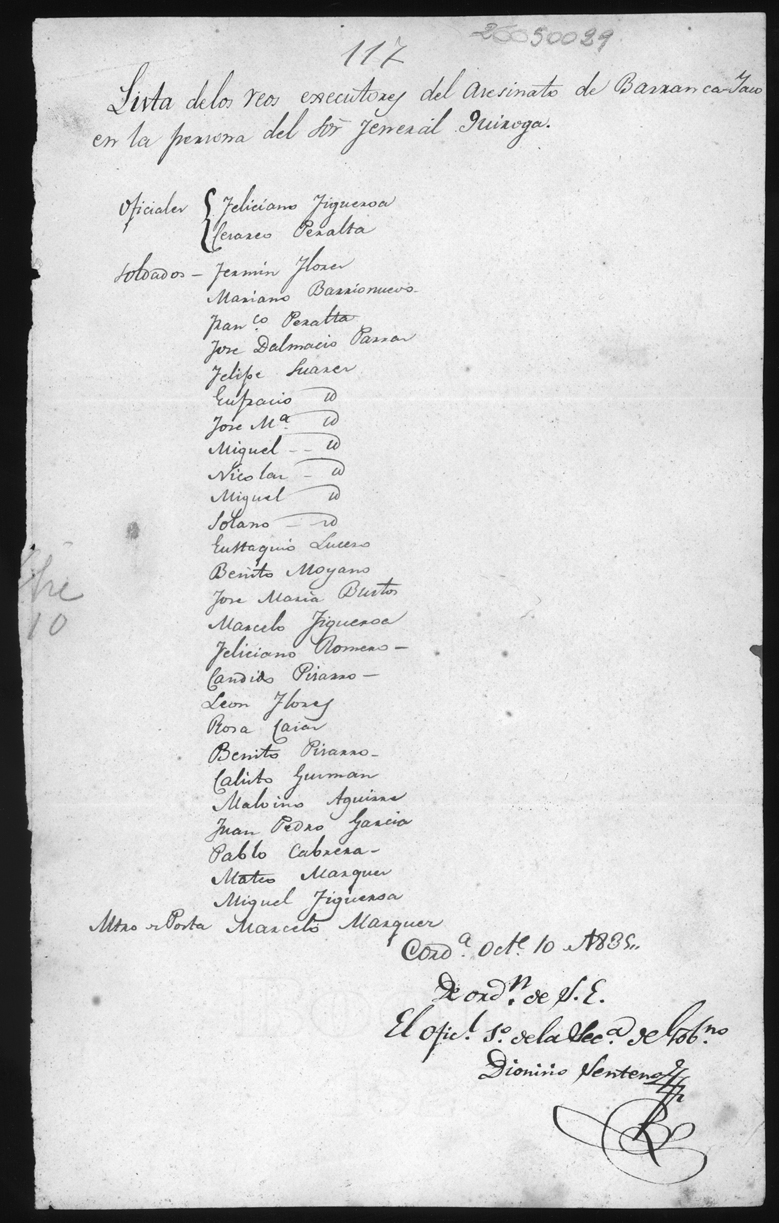 117
20050029
Lista delos reos executores del Asesinato de Barranca-Iaco
en la persona del Sor Jeneral Quiroga.
Oficiales { Feliciano Figueroa
Cesareo Peralta
Soldados - Fermin Flores
Mariano Barrionuevo-
Franco. Peralta
Jose Dalmacio Parras
Felipe Suares
Eufracio id
Jose Ma. id
Miguel -- id
Nicolas - id
Miguel id
Solano - id
Eustaquio Lucero
Benito Moyano
Jose Maria Bustos
Marcelo Figueroa
Feliciano Romero-
Candido Pisarro-
Leon Flores
Rosa Casas
Benito Pisarro-
Calisto Gusman
Malvino Aguirre
Juan Pedro Garcia
Pablo Cabrera-
Mateo Marques
Miguel Figueroa
Mtro Posta Marcelo Marques
10
Corda. Octe. 10 1835,,
De ordn. de S.E.
El oficl. 1o. de la Seca. de Gobno
Dionisio Senteno